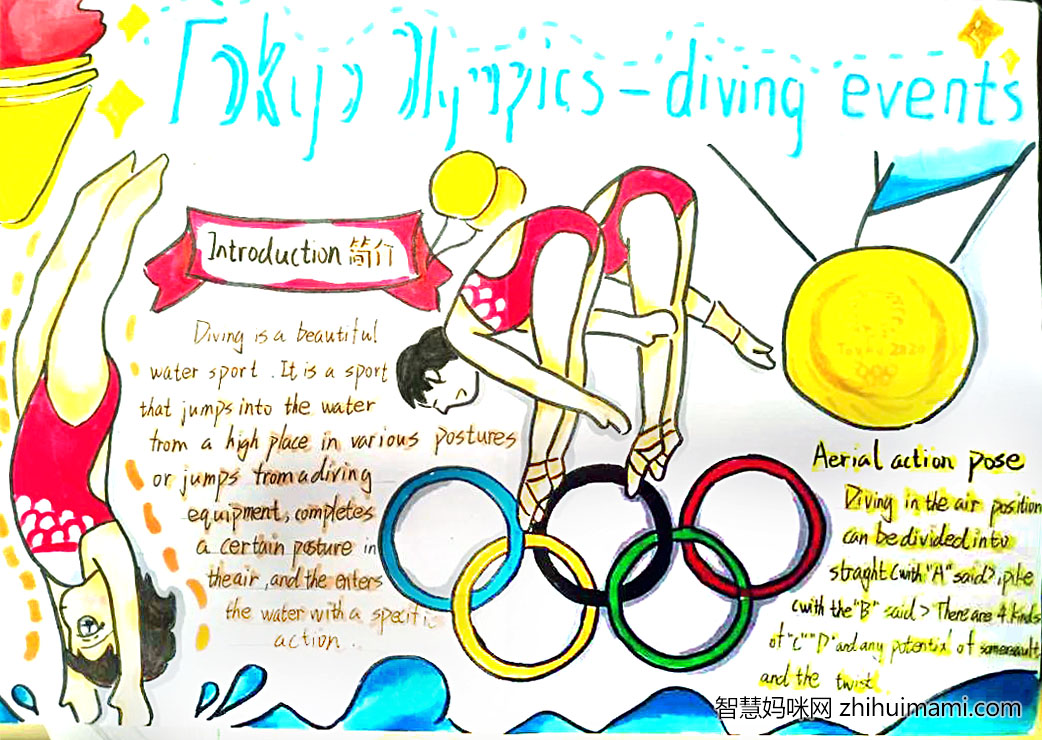 Tokyo Olympics - diving events
Introduction 简介
Diving is a beautiful
water sport. It is a sport
that jumps into the water
from a high place in various postures
or jumps from a diving
equipment, completes
a certain posture in
the air, and the enters
the water with a specific
action.
Tokyo 2020
Aerial action pose
Diving in the air position
can be divided into
straght (with "A" said>, pike
(with the "B" said> There are 4 kinds
of "C" "D" and any potential of somersault
and the twist.
智慧妈咪网 zhihuimami.com